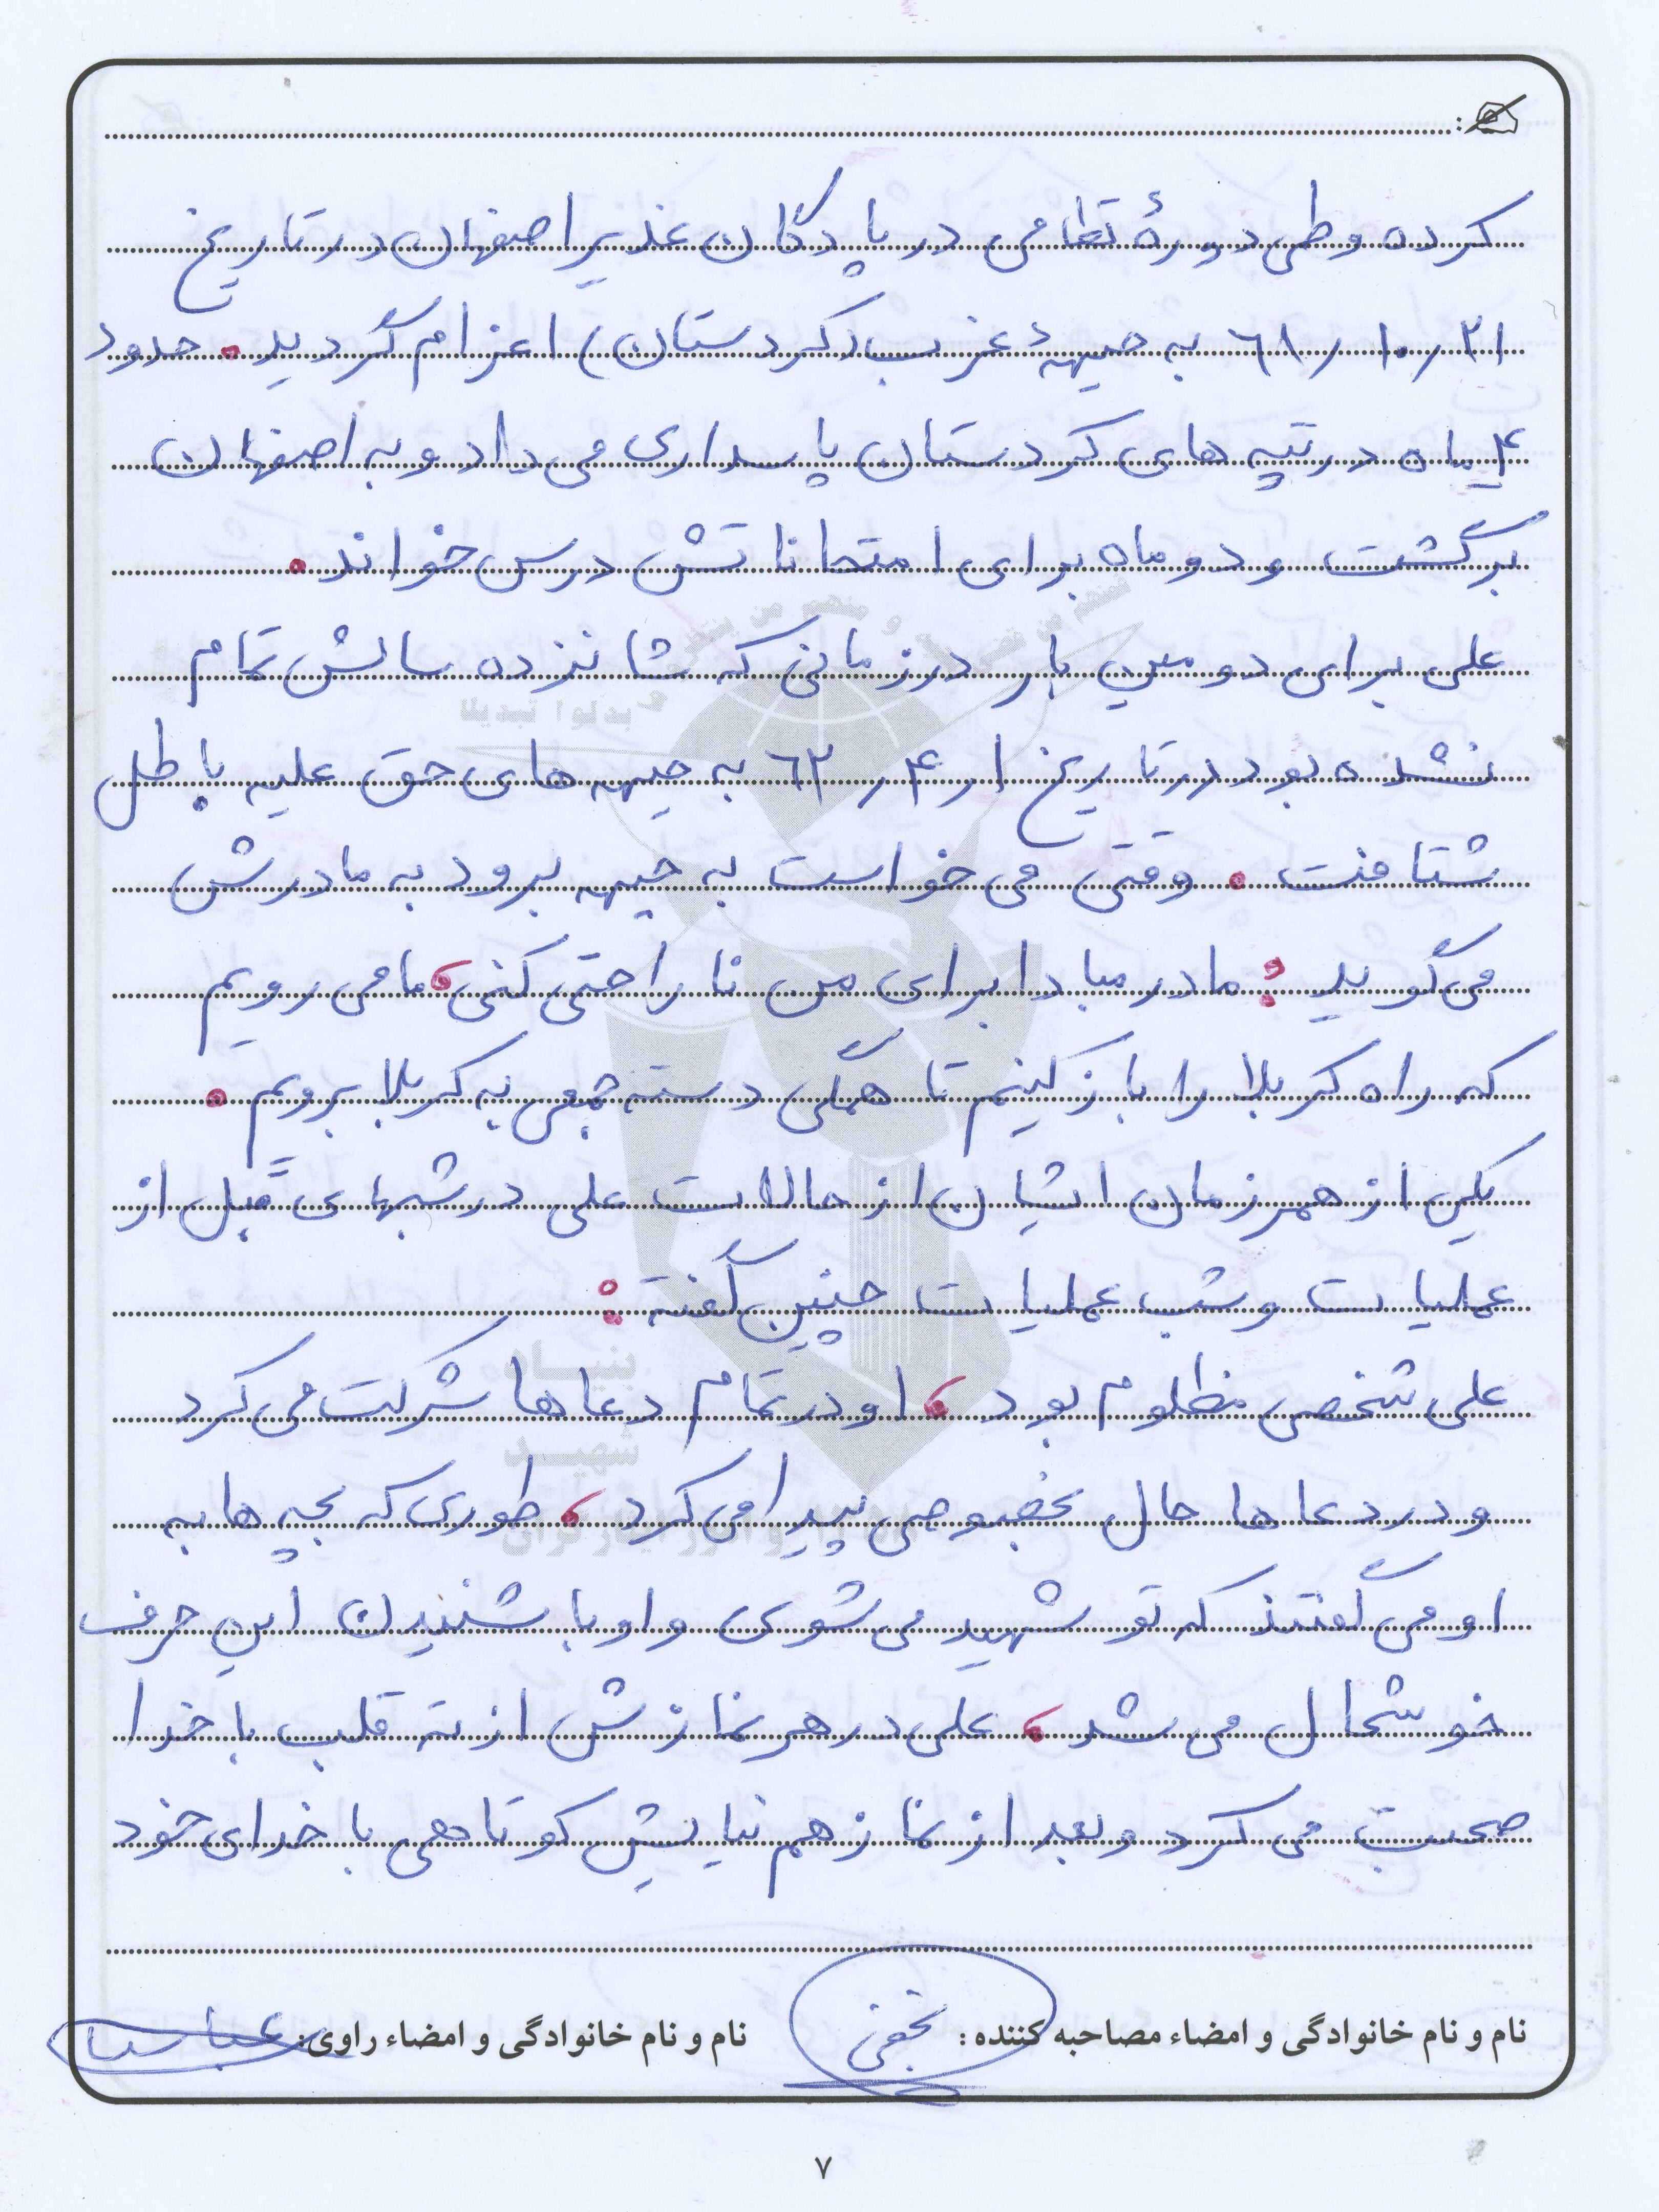 کرده و طی دورهٔ نظامی در پادگان غدیر اصفهان در تاریخ
۶۱/۱۰/۲۱ به جبههٔ غرب (کردستان) اعزام گردید. حدود
۴ ماه در تپه های کردستان پاسداری می داد و به اصفهان
برگشت و دو ماه برای امتحاناتش درس خواند.
علی برای دومین بار در زمانی که شانزده سالش تمام
نشده بود در تاریخ ۶۲/۴/۱ به جبهه های حق علیه باطل
شتافت. وقتی می خواست به جبهه برود به مادرش
می گوید: مادر مبادا برای من ناراحتی کنی، ما می رویم
که راه کربلا را باز کنیم تا همگی دسته جمعی به کربلا برویم.
یکی از همرزمان ایشان از حالات علی در شبهای قبل از
عملیات و شب عملیات چنین گفته:
علی شخصی مظلوم بود، او در تمام دعاها شرکت می کرد
و در دعاها حال بخصوصی پیدا می کرد، طوری که بچه ها به
او می گفتند که تو شهید می شوی و او با شنیدن این حرف
خوشحال می شد، علی در هر نمازش از ته قلب با خدا
صحبت می کرد و بعد از نماز هم نیایش کوتاهی با خدای خود
نام و نام خانوادگی و امضاء مصاحبه کننده: نجفی نام و نام خانوادگی و امضاء راوی:
۷